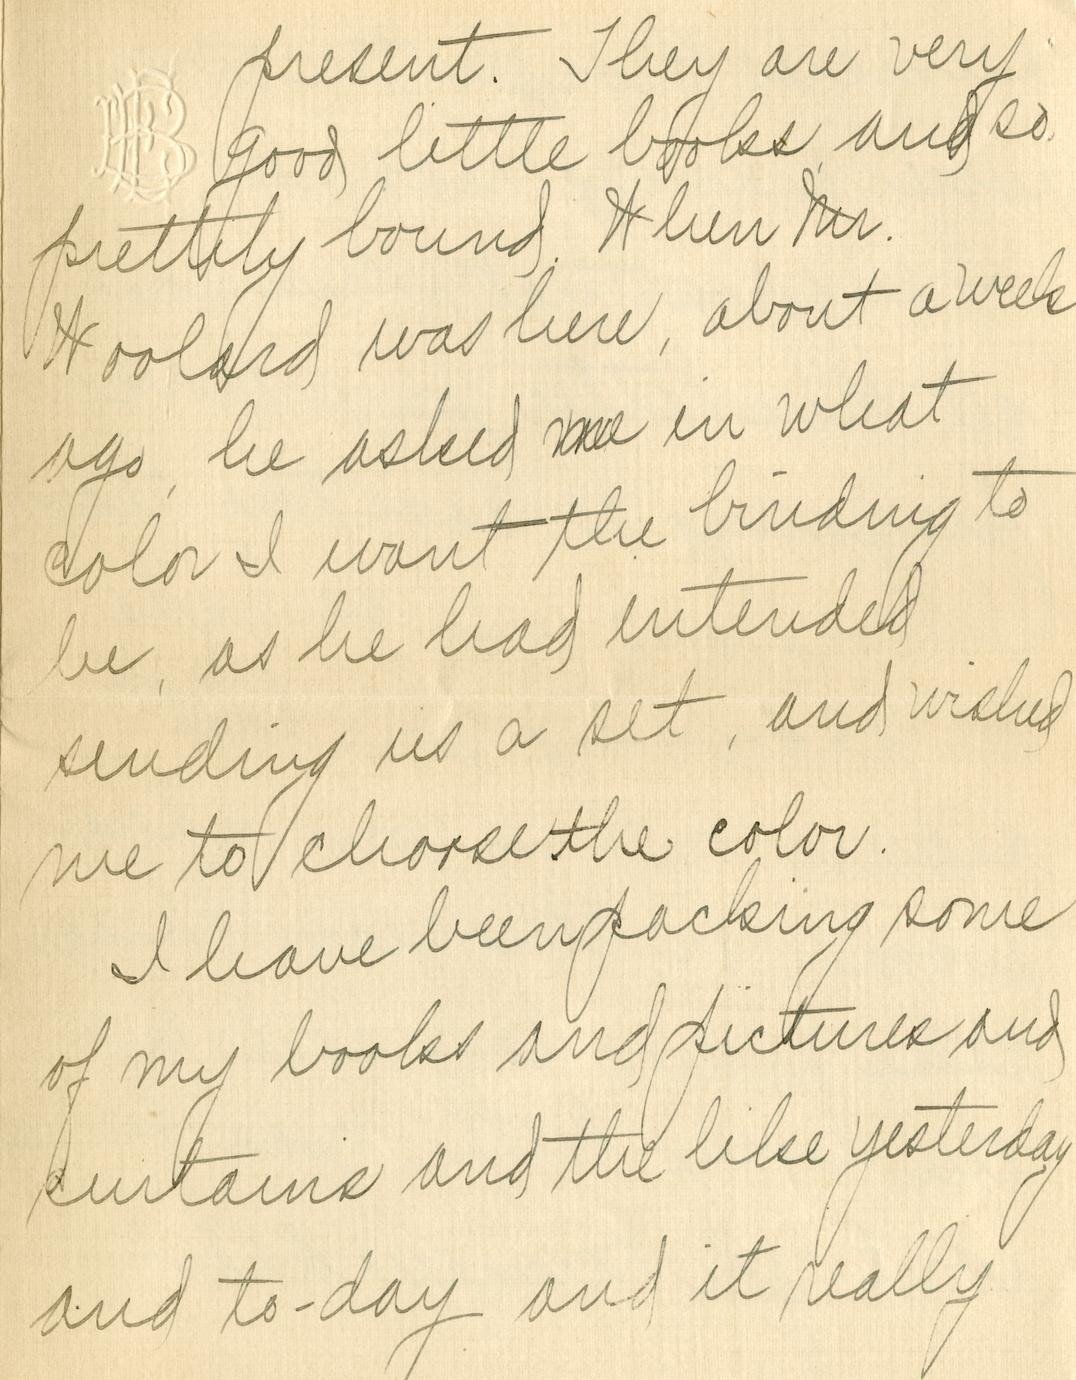 present. They are very
good little books, and so
prettily bound. When Mr.
Woolard was here, about a week
ago, he asked me in what
color I want the binding to
be, as he had intended
sending us a set, and wished
me to choose the color.
I have been packing some
of my books and pictures and
curtains and the like yesterday
and to-day and it really